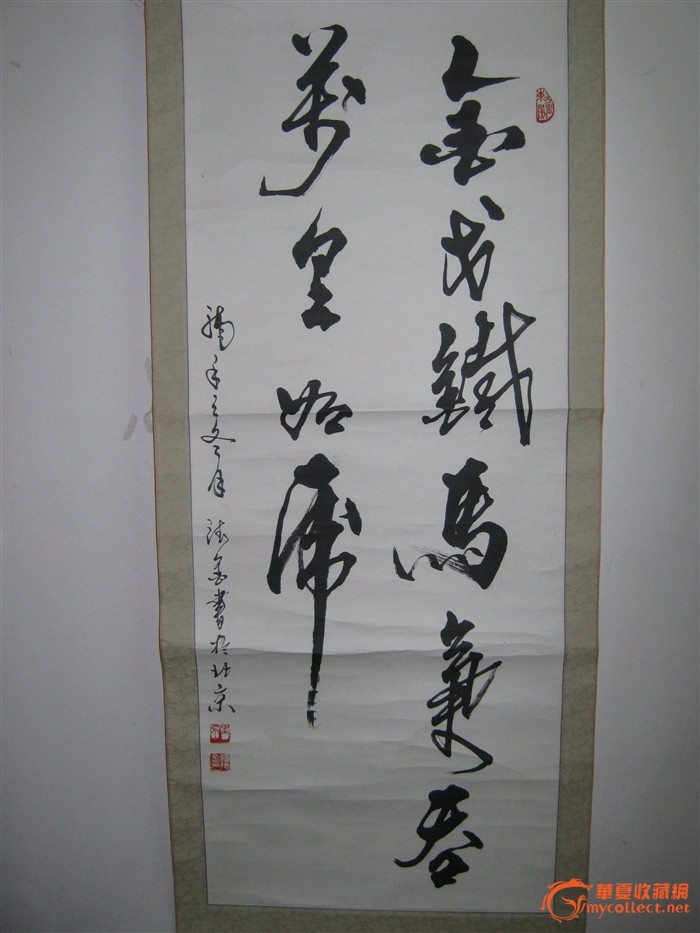 金戈鐵馬氣吞
萬里如虎
年之月 書於北京
華夏收藏網
mycollect.net